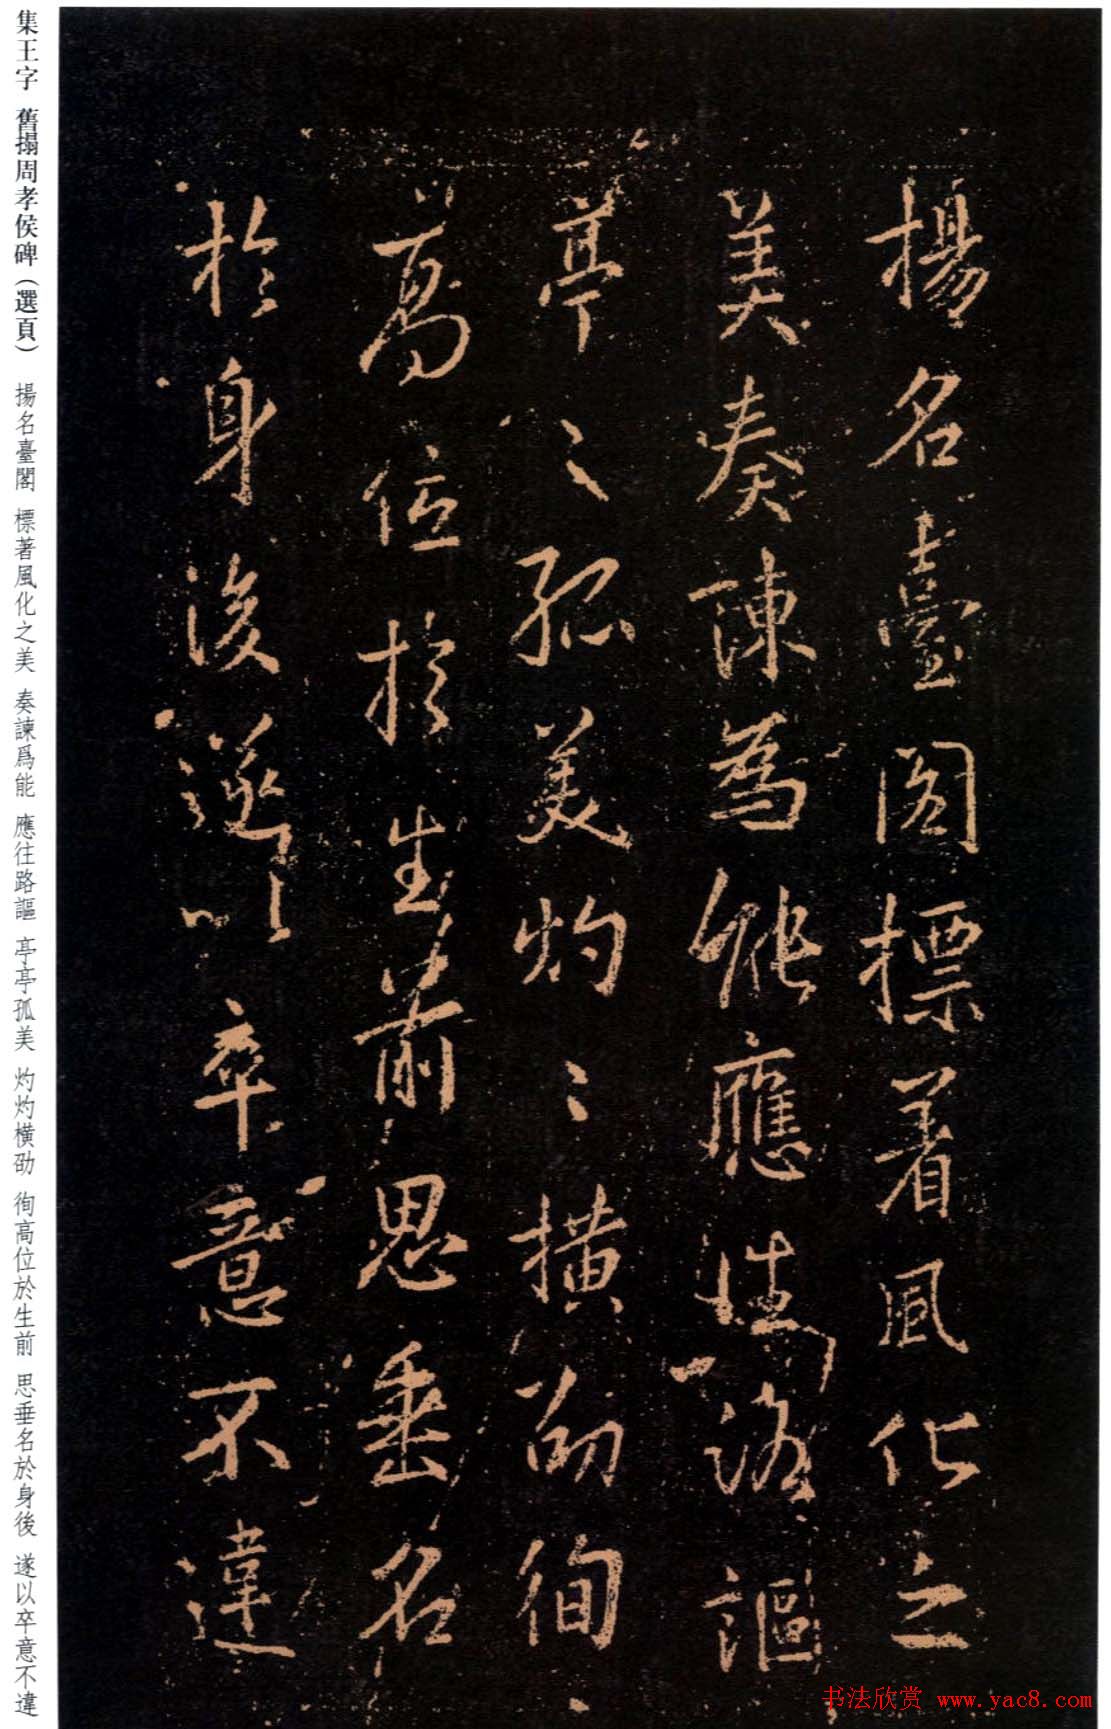 揚名臺閣標著風化之
美奏諫為能應往路謳
亭〻孤美灼〻橫劭徇
高位於生前思垂名
於身後遂以卒意不違
集王字 舊搨周孝侯碑（選頁） 揚名臺閣 標著風化之美 奏諫爲能 應往路謳 亭亭孤美 灼灼橫劭 徇高位於生前 思垂名於身後 遂以卒意不違
书法欣赏 www.yac8.com